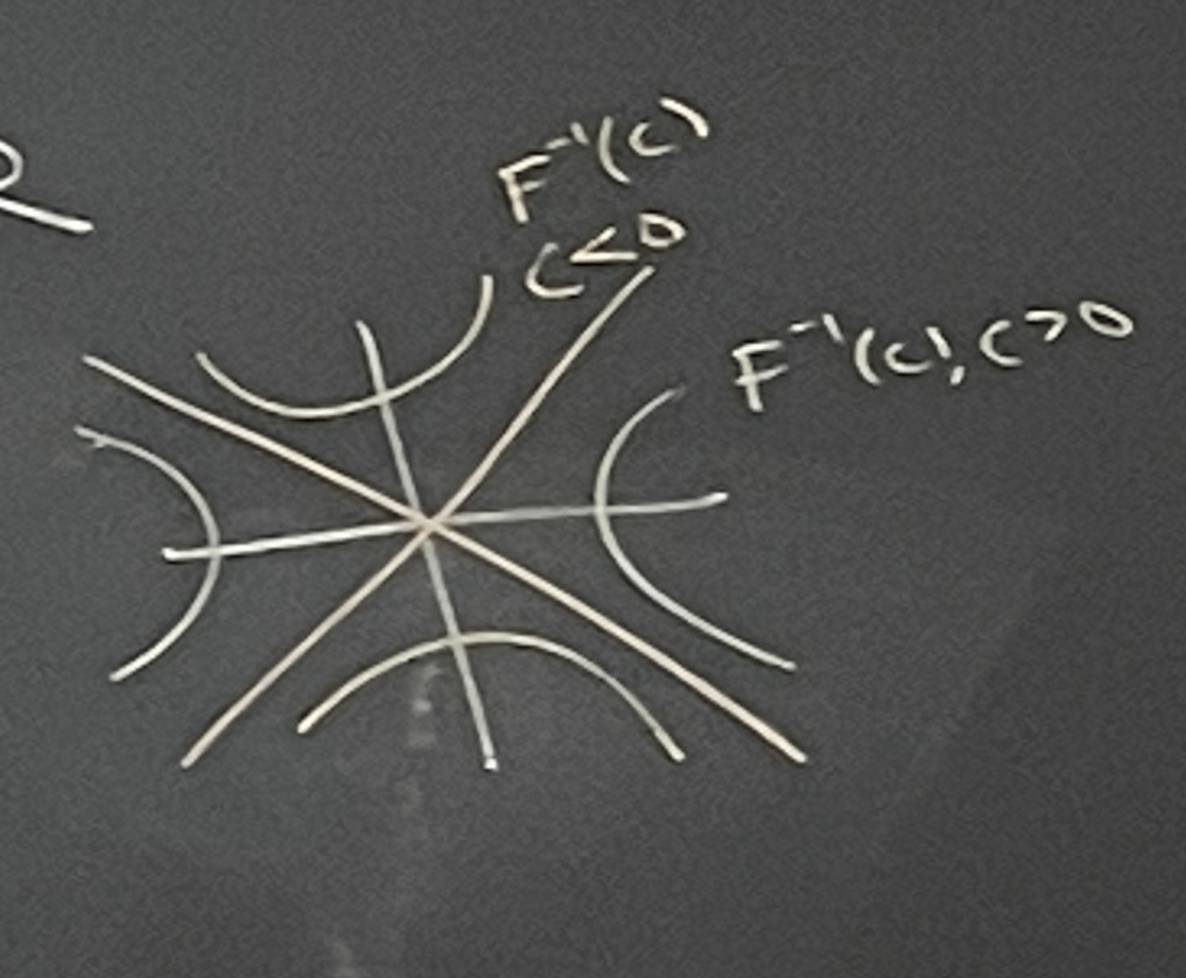 F⁻¹(c)
c<0
F⁻¹(c), c>0